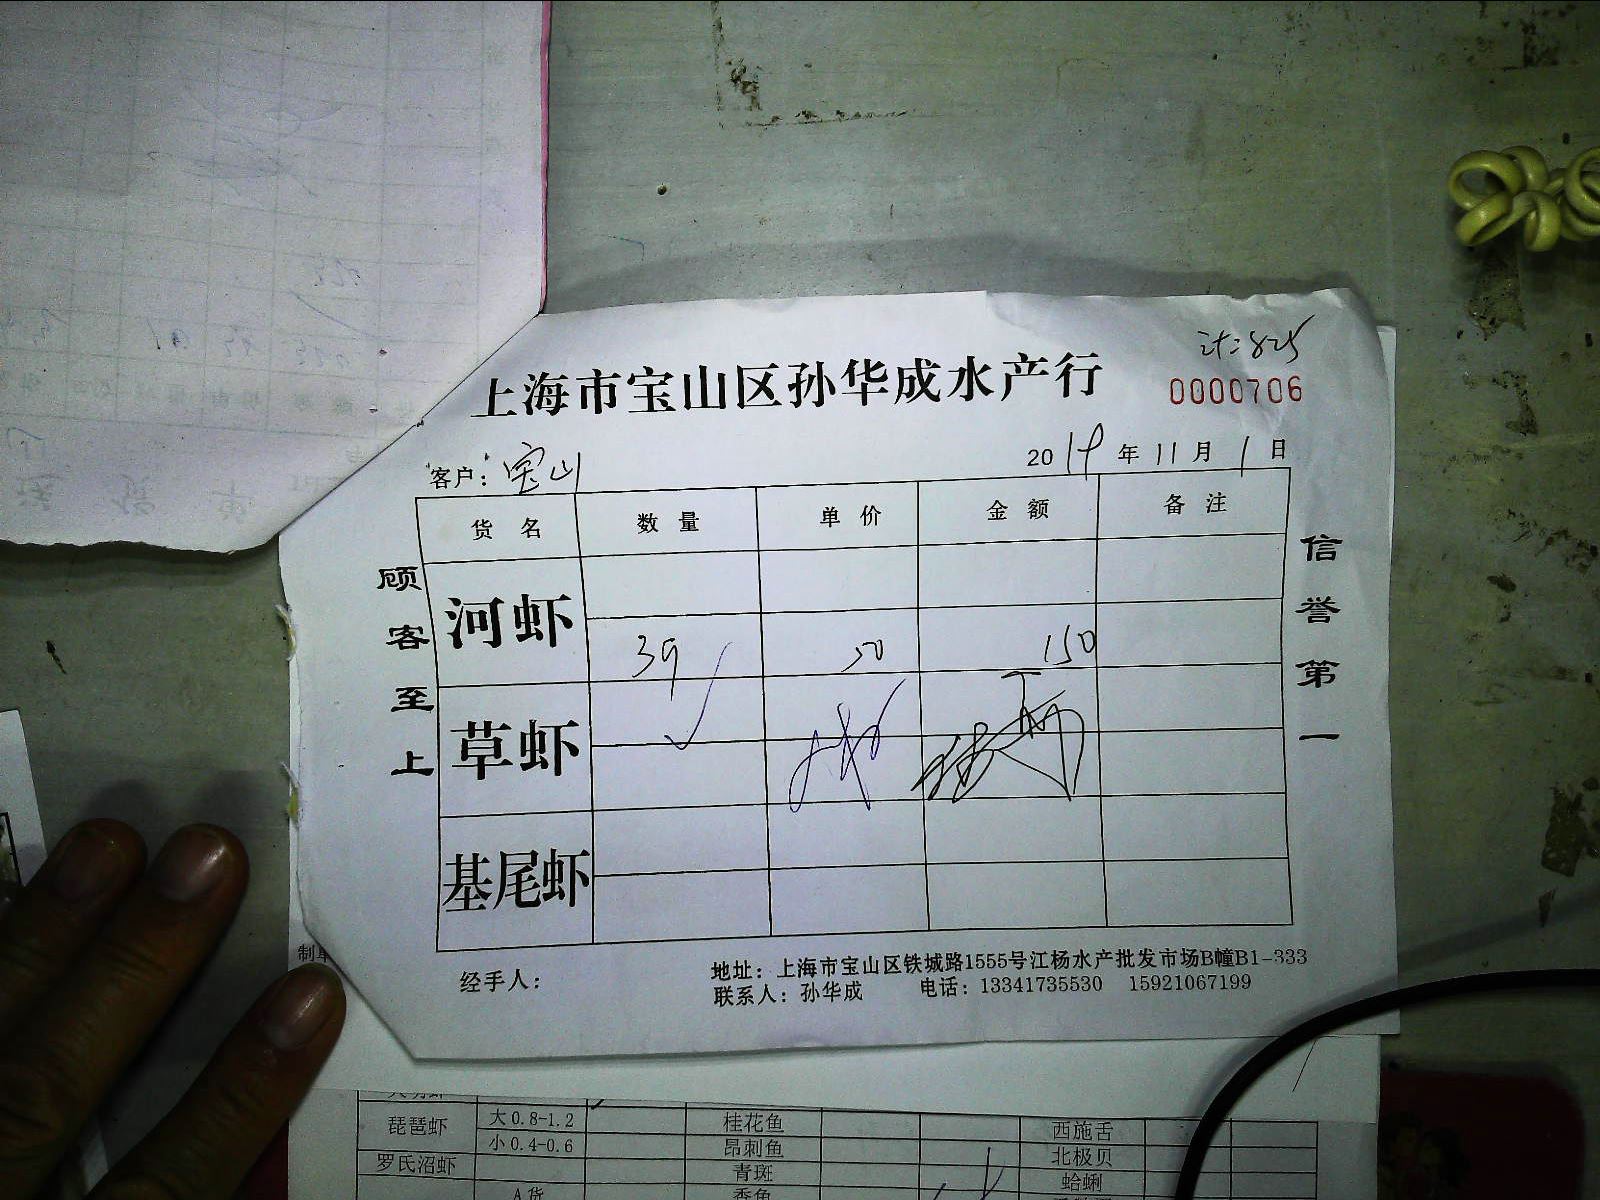 计:825
上海市宝山区孙华成水产行
0000706
客户:宝山 2019年11月1日
货名 数量 单价 金额 备注
河虾
39 50 150
草虾
基尾虾
顾客至上
信誉第一
经手人:
地址:上海市宝山区铁城路1555号江杨水产批发市场B幢B1-333
联系人:孙华成 电话:13341735530 15921067199
制单
琵琶虾 大0.8-1.2 桂花鱼 西施舌
小0.4-0.6 昂刺鱼 北极贝
罗氏沼虾 青斑 蛤蜊
A货